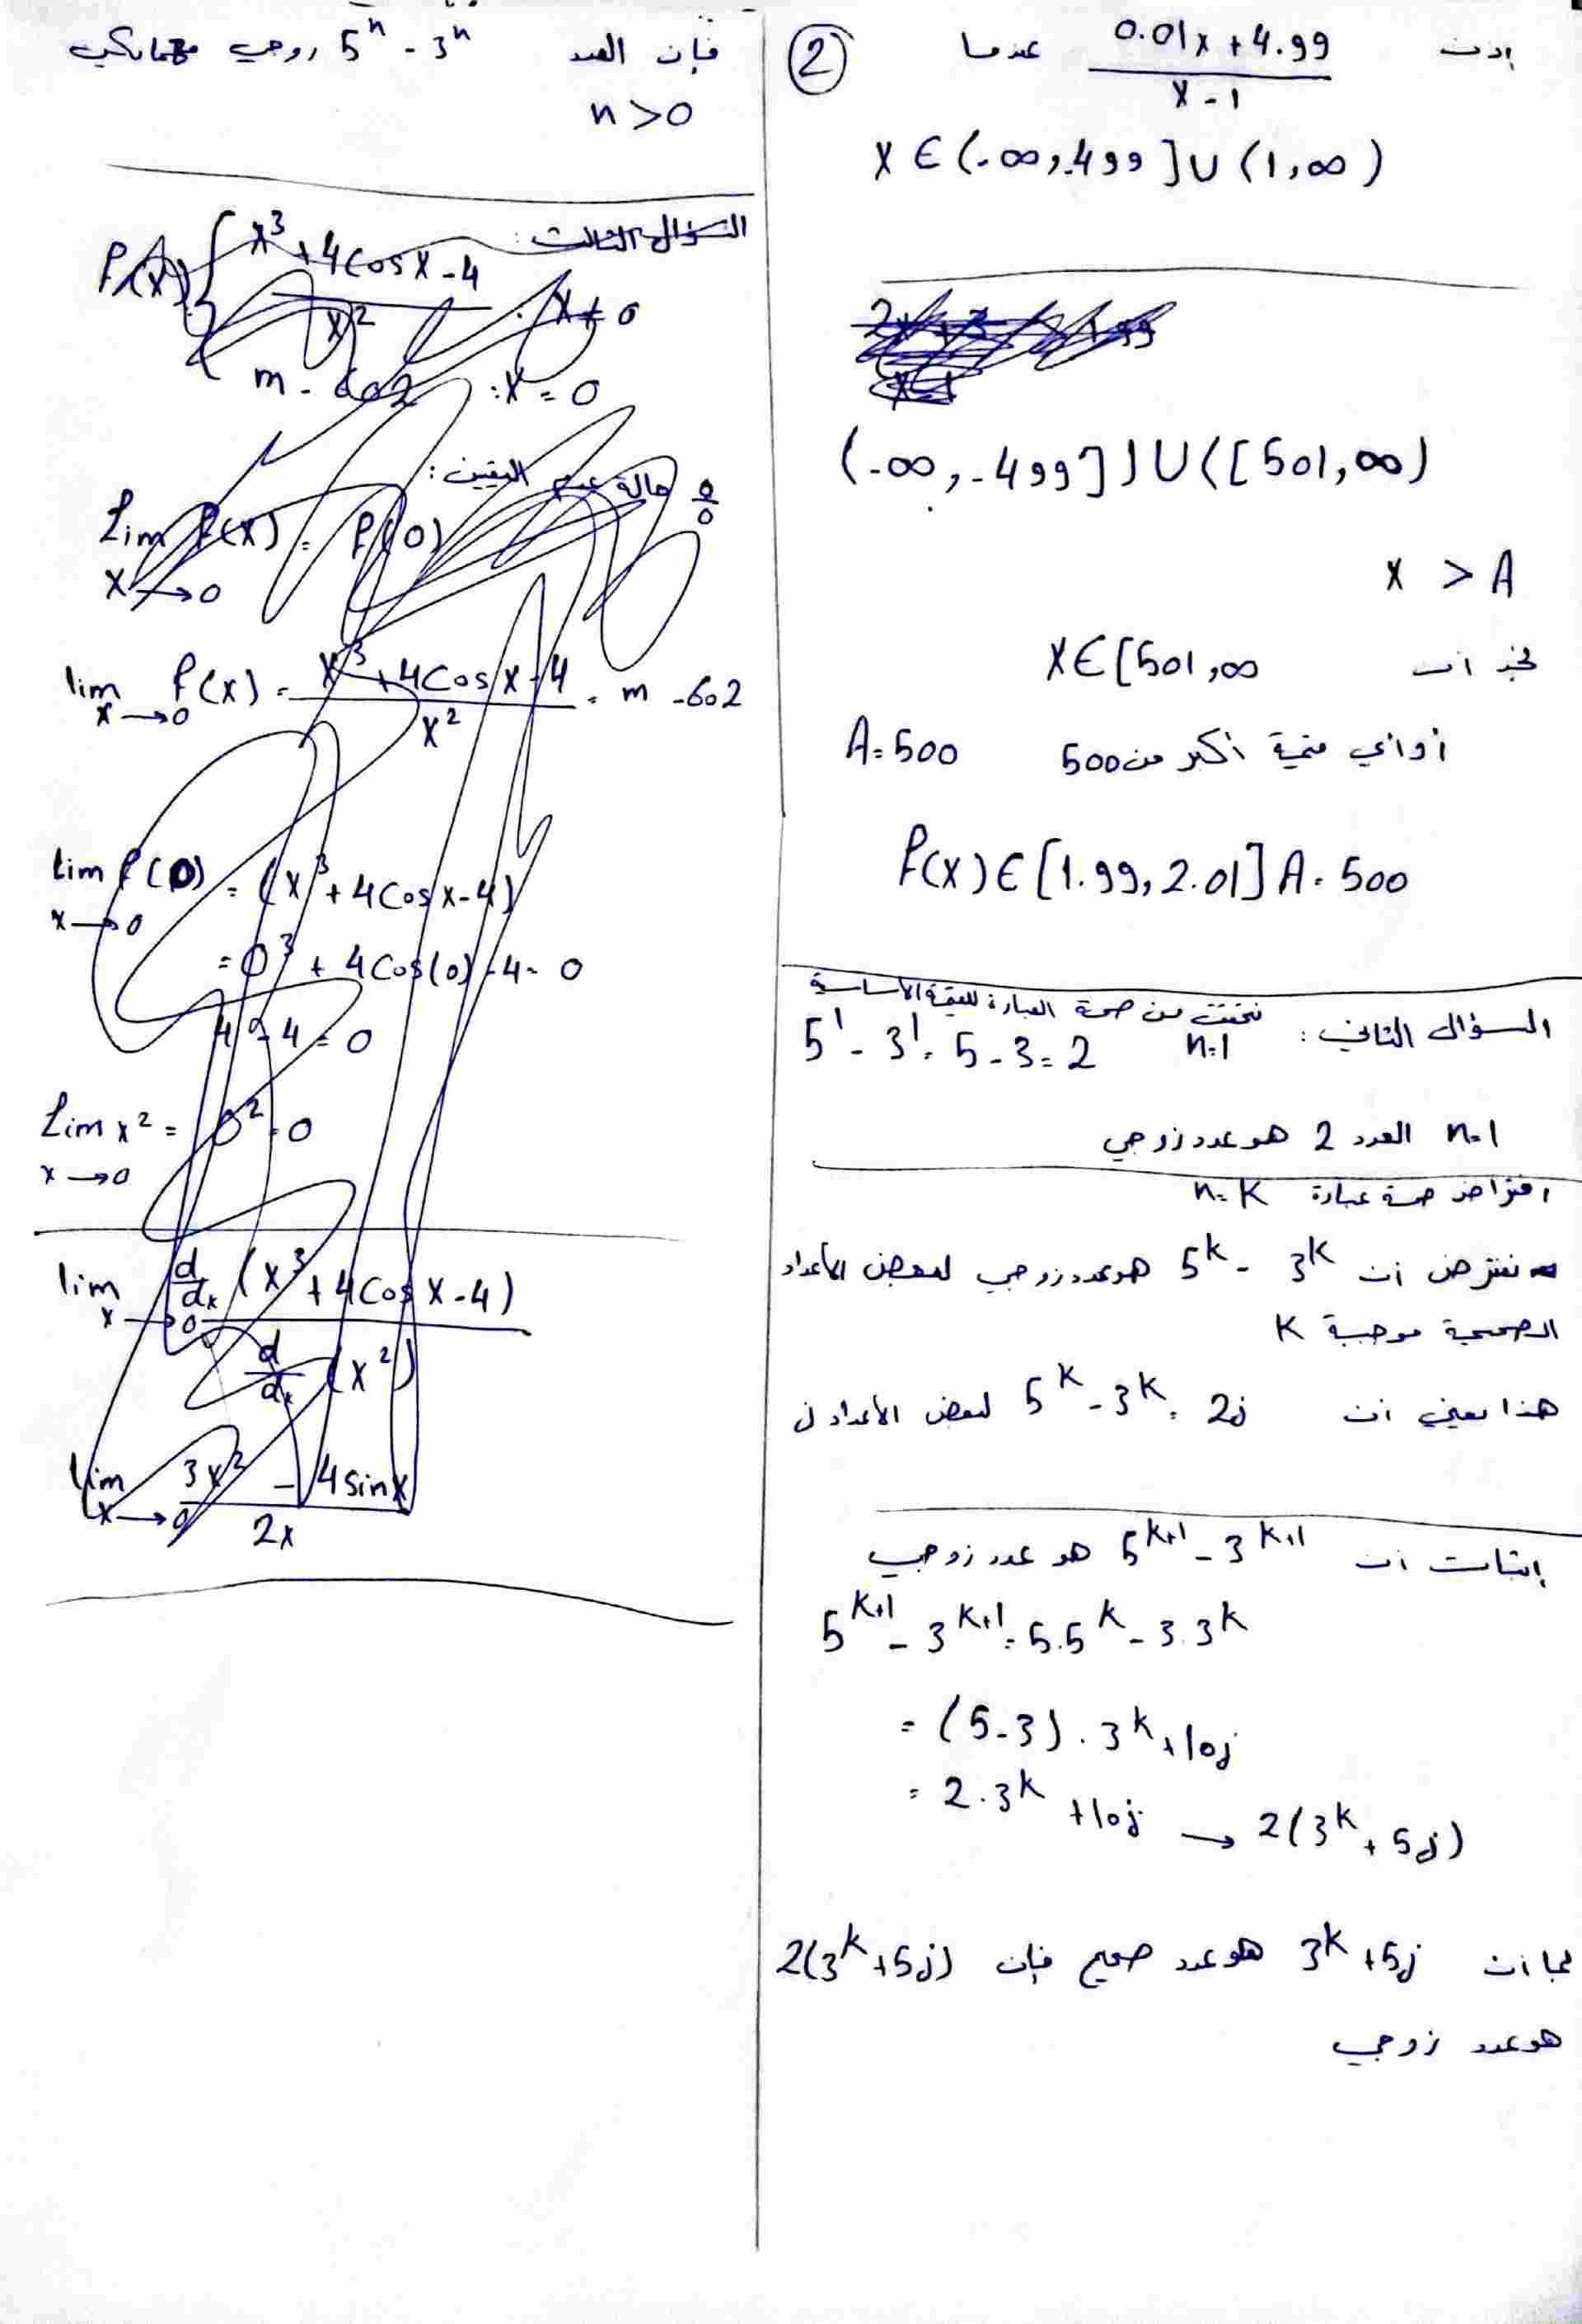 ② إذن 0.01x + 4.99 / x - 1 عندما
x ∈ (-∞, -499] ∪ (1, ∞)
(-∞, -499]) ∪ ([501, ∞)
x > A
نجد أن x ∈ [501, ∞
أو أي قيمة أكبر من 500 A = 500
f(x) ∈ [1.99, 2.01] A = 500
السؤال الثاني: نتحقق من صحة العبارة للقيمة الأساسية
n = 1 5^1 - 3^1 = 5 - 3 = 2
n = 1 العدد 2 هو عدد زوجي
افتراض صحة عبارة n = K
نفترض أن 5^K - 3^K هو عدد زوجي لبعض الأعداد
الصحيحة موجبة K
هذا يعني أن 5^K - 3^K = 2j لبعض الأعداد
إثبات أن 5^{K+1} - 3^{K+1} هو عدد زوجي
5^{K+1} - 3^{K+1} = 5.5^K - 3.3^K
= (5-3) . 3^K + 10j
= 2.3^K + 10j → 2(3^K + 5j)
بما أن 3^K + 5j هو عدد صحيح فإن 2(3^K + 5j)
هو عدد زوجي
فإن العدد 5^n - 3^n زوجي مهما يكن
n > 0
السؤال الثالث:
f(x) { x^3 + 4cos x - 4 / x^2 : x ≠ 0
m - 602 : x = 0
حالة عدم اليقين: 0/0
Lim x→0 f(x) = f(0)
lim x→0 f(x) = x^3 + 4Cos x - 4 / x^2 = m - 602
lim x→0 f(0) = (x^3 + 4Cos x - 4)
= 0^3 + 4Cos(0) - 4 = 0
4 - 4 = 0
Lim x→0 x^2 = 0^2 = 0
lim x→0 d/dx (x^3 + 4Cos x - 4) / d/dx (x^2)
lim x→0 3x^2 - 4sin x / 2x